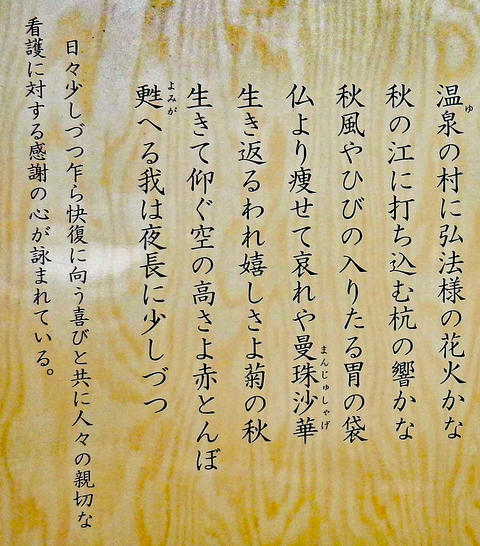 温泉の村に弘法様の花火かな
秋の江に打ち込む杭の響かな
秋風やひびの入りたる胃の袋
仏より痩せて哀れや曼珠沙華
生き返るわれ嬉しさよ菊の秋
生きて仰ぐ空の高さよ赤とんぼ
甦へる我は夜長に少しづつ
日々少しづつ乍ら快復に向う喜びと共に人々の親切な
看護に対する感謝の心が詠まれている。
ゆ
まんじゅしゃげ
よみが